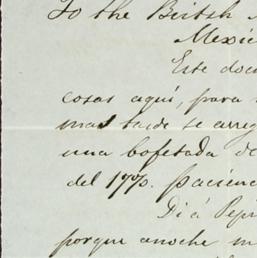 To the British
Mexic
Este docu
cosas aquí, para
mas tarde se arreg
una bofetada de
del 17%. Pacienc
Di á Pepi
porque anoche m